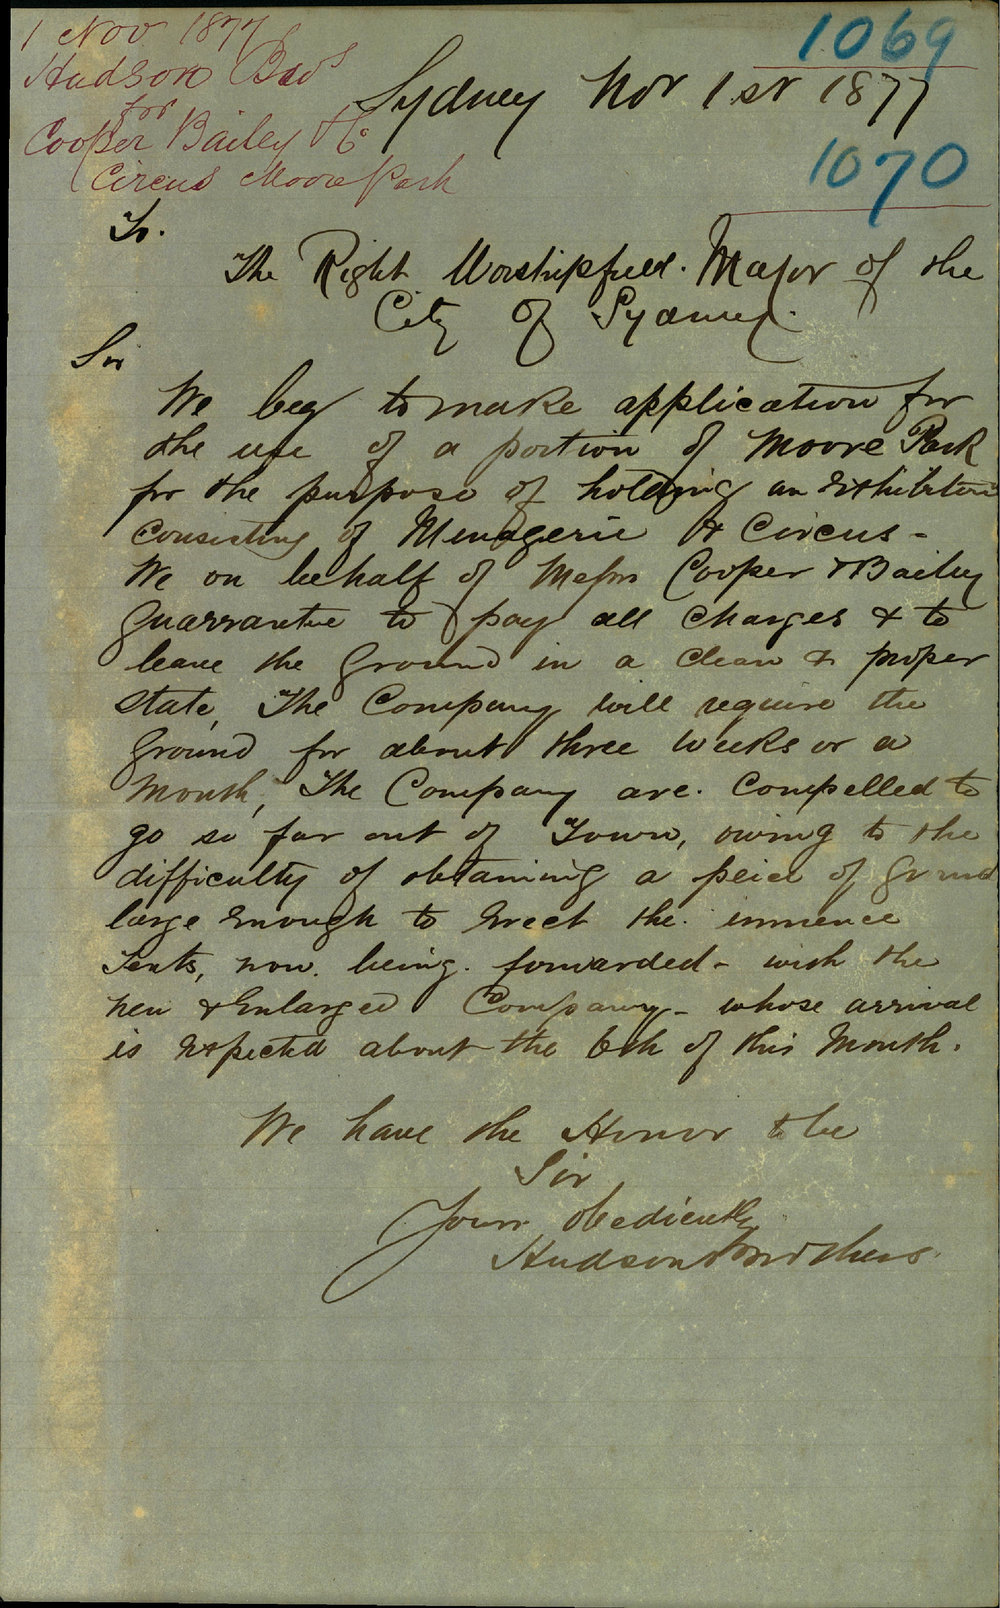 1 Nov 1877
Hudson Bros
for
Cooper Bailey & Co
Circus Moore Park
1069
Sydney Nov 1st 1877
1070
To.
The Right Worshipfull. Mayor of the
City of Sydney.
Sir
We beg to make application for
the use of a portion of Moore Park
for the purpose of holding an Exhibition
Consisting of Menagerie & Circus -
We on behalf of Messrs Cooper & Bailey
Guarrantee to pay all Charges & to
leave the Ground in a clean & proper
state, The Company will require the
Ground for about three weeks or a
Month, The Company are. Compelled to
go so far out of Town, owing to the
difficulty of obtaining a peice of Ground
large Enough to Erect the. immence
Tents, now. being. forwarded - with the
new & Enlarged Company - whose arrival
is Expected about the 6th of this Month.
We have the Honor to be
Sir
Yours obediently
Hudson Brothers